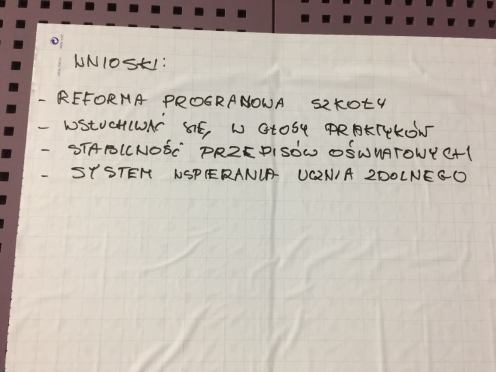 WNIOSKI:
- REFORMA PROGRAMOWA SZKOŁY
- WSŁUCHIWAĆ SIĘ, W GŁOSY PRAKTYKÓW
- STABILNOŚĆ PRZEPISÓW OŚWIATOWYCH
- SYSTEM WSPIERANIA UCZNIA ZDOLNEGO